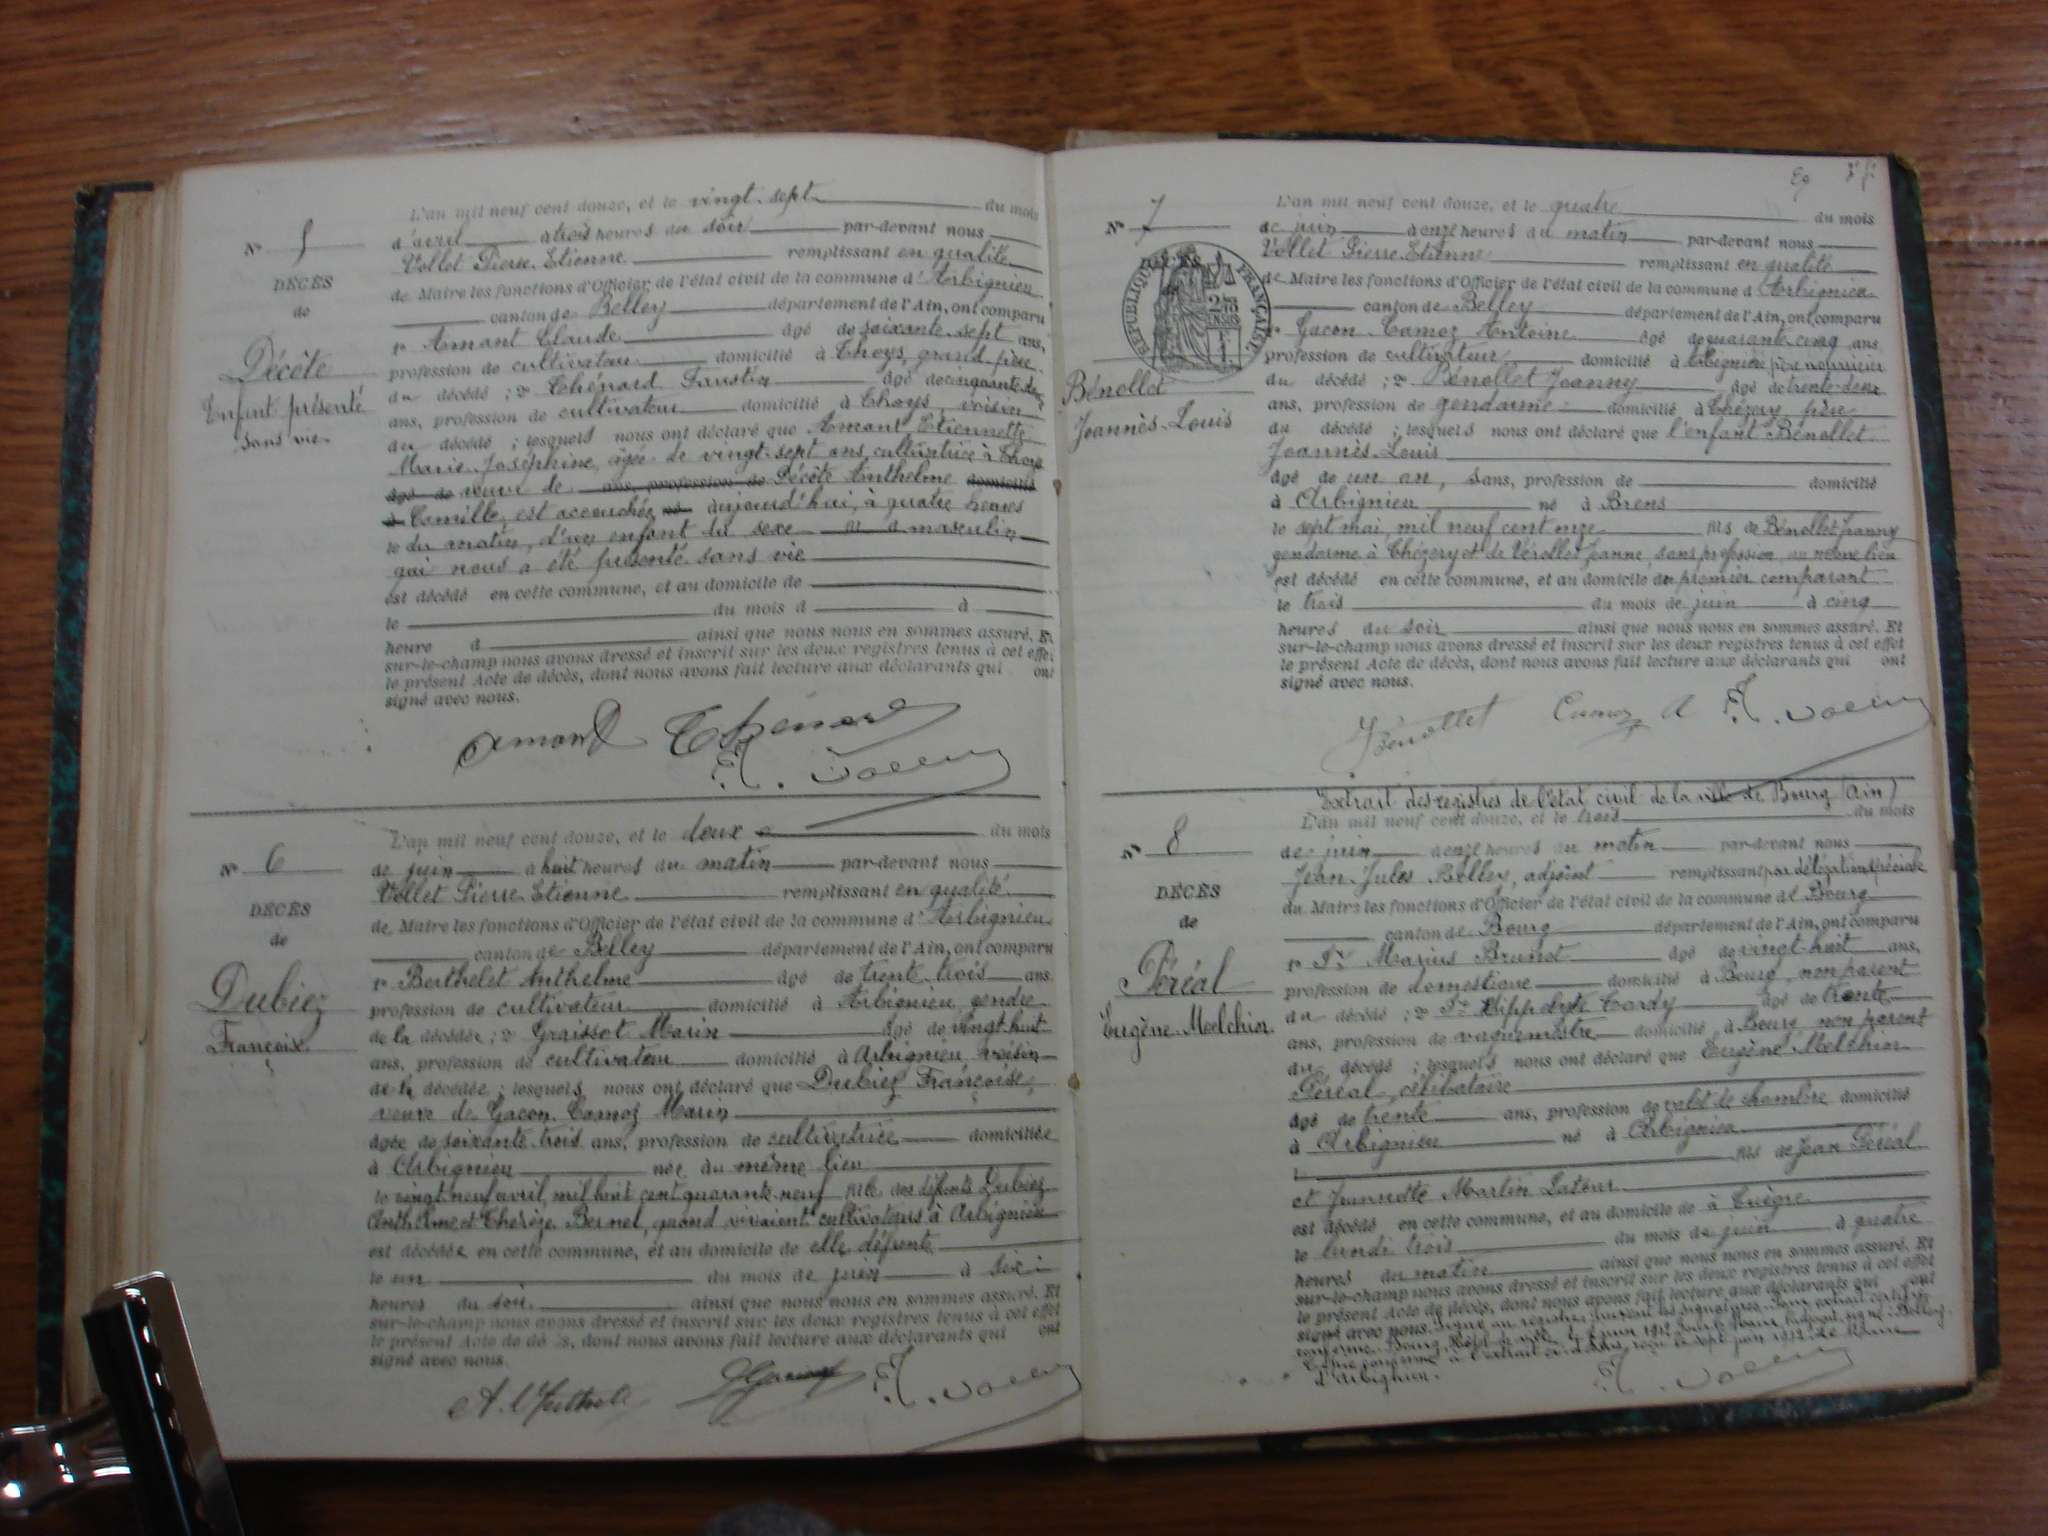 L'an mil neuf cent douze, et le vingt-sept du mois
N° 5
d'avril à trois heures du soir par-devant nous
Vollet Pierre Etienne remplissant en qualité
DÉCÈS
de Maire les fonctions d'Officier de l'état civil de la commune d'Arbignieu
de
canton de Belley département de l'Ain, ont comparu
1° Amant Claude âgé de soixante-sept ans,
Décôte
profession de cultivateur domicilié à Thoys, grand père
du décédé ; 2° Thénard Faustin âgé de cinquante-deux
Enfant présenté
ans, profession de cultivateur domicilié à Thoys, voisin
sans vie
du décédé ; lesquels nous ont déclaré que Amant Etiennette
Marie Joséphine, âgée de vingt-sept ans, cultivatrice à Thoys
âgé de veuve de ans, profession de Décôte Anthelme domicilié
à Camille, est accouchée aujourd'hui, à quatre heures
le du matin, d'un enfant du sexe masculin
qui nous a été présenté sans vie
est décédé en cette commune, et au domicile de
le du mois d à
heure d ainsi que nous nous en sommes assuré. Et
sur-le-champ nous avons dressé et inscrit sur les deux registres tenus à cet effet
le présent Acte de décès, dont nous avons fait lecture aux déclarants qui ont
signé avec nous.
Amant Thénard
L'an mil neuf cent douze, et le deux du mois
N° 6
de juin à huit heures du matin par-devant nous
Vollet Pierre Etienne remplissant en qualité
DÉCÈS
de Maire les fonctions d'Officier de l'état civil de la commune d'Arbignieu
de
canton de Belley département de l'Ain, ont comparu
1° Berthelet Anthelme âgé de trente-trois ans
Dubiez
profession de cultivateur domicilié à Arbignieu, gendre
de la décédée ; 2° Graissot Marin âgé de vingt-huit
Françoise
ans, profession de cultivateur domicilié à Arbignieu voisin
de la décédée ; lesquels nous ont déclaré que Dubiez Françoise,
veuve de Gacon-Camoz Marin
âgée de soixante-trois ans, profession de cultivatrice domiciliée
à Arbignieu née au même lieu
le vingt-neuf avril, mil huit cent quarante-neuf fille des défunts Dubiez
Anthelme et Thérèze Bernel, quand vivaient cultivateurs à Arbignieu
est décédée en cette commune, et au domicile de elle défunte
le un du mois de juin à six
heures du soir ainsi que nous nous en sommes assuré. Et
sur-le-champ nous avons dressé et inscrit sur les deux registres tenus à cet effet
le présent Acte de décès, dont nous avons fait lecture aux déclarants qui ont
signé avec nous.
L'an mil neuf cent douze, et le quatre du mois
N° 7
de juin à onze heures du matin par-devant nous
Vollet Pierre Etienne remplissant en qualité
RÉPUBLIQUE FRANÇAISE
de Maire les fonctions d'Officier de l'état civil de la commune d'Arbignieu
canton de Belley département de l'Ain, ont comparu
1° Gacon-Camoz Antoine âgé de quarante-cinq ans
profession de cultivateur domicilié à Arbignieu père nourricier
Bénollet
du décédé ; 2° Bénollet Joanny âgé de trente-deux
ans, profession de gendarme domicilié à Chézery père
Joannès-Louis
du décédé ; lesquels nous ont déclaré que l'enfant Bénollet
Joannès-Louis
âgé de un an, sans, profession de domicilié
à Arbignieu né à Brens
le sept mai, mil neuf cent onze fils de Bénollet Joanny
gendarme à Chézery et de Vérollet Jeanne, sans profession, au même lieu
est décédé en cette commune, et au domicile du premier comparant
le trois du mois de juin à cinq
heures du soir ainsi que nous nous en sommes assuré. Et
sur-le-champ nous avons dressé et inscrit sur les deux registres tenus à cet effet
le présent Acte de décès, dont nous avons fait lecture aux déclarants qui ont
signé avec nous.
J Bénollet Camoz A
Extrait des registres de l'état civil de la ville de Bourg (Ain)
L'an mil neuf cent douze, et le trois du mois
N° 8
de juin à onze heures du matin par-devant nous
Jean-Jules Belley, adjoint remplissant par délégation spéciale
DÉCÈS
du Maire les fonctions d'Officier de l'état civil de la commune de Bourg
de
canton de Bourg département de l'Ain, ont comparu
1° Sr Marius Brunet âgé de vingt-huit ans,
Péréal
profession de domestique domicilié à Bourg, non parent
du décédé ; 2° Sr Hippolyte Cordy âgé de trente
Eugène-Melchior
ans, profession de vaguemestre domicilié à Bourg non parent
du décédé ; lesquels nous ont déclaré que Eugène-Melchior
Péréal, célibataire
âgé de trente ans, profession de valet de chambre domicilié
à Arbignieu né à Arbignieu
fils de Jean Péréal
et Jeannette Martin Latour
est décédé en cette commune, et au domicile de à Cuègre
le lundi trois du mois de juin à quatre
heures du matin ainsi que nous nous en sommes assuré. Et
sur-le-champ nous avons dressé et inscrit sur les deux registres tenus à cet effet
le présent Acte de décès, dont nous avons fait lecture aux déclarants qui ont
signé avec nous. Signé au registre suivent les signatures. Pour extrait certifié
conforme. Bourg, Hôtel de ville, le 6 juin 1912. Pour le Maire l'adjoint, signé: Belley.
conforme à l'extrait ci-dessus, reçu le sept juin 1912. Le Maire
d'Arbignieu.